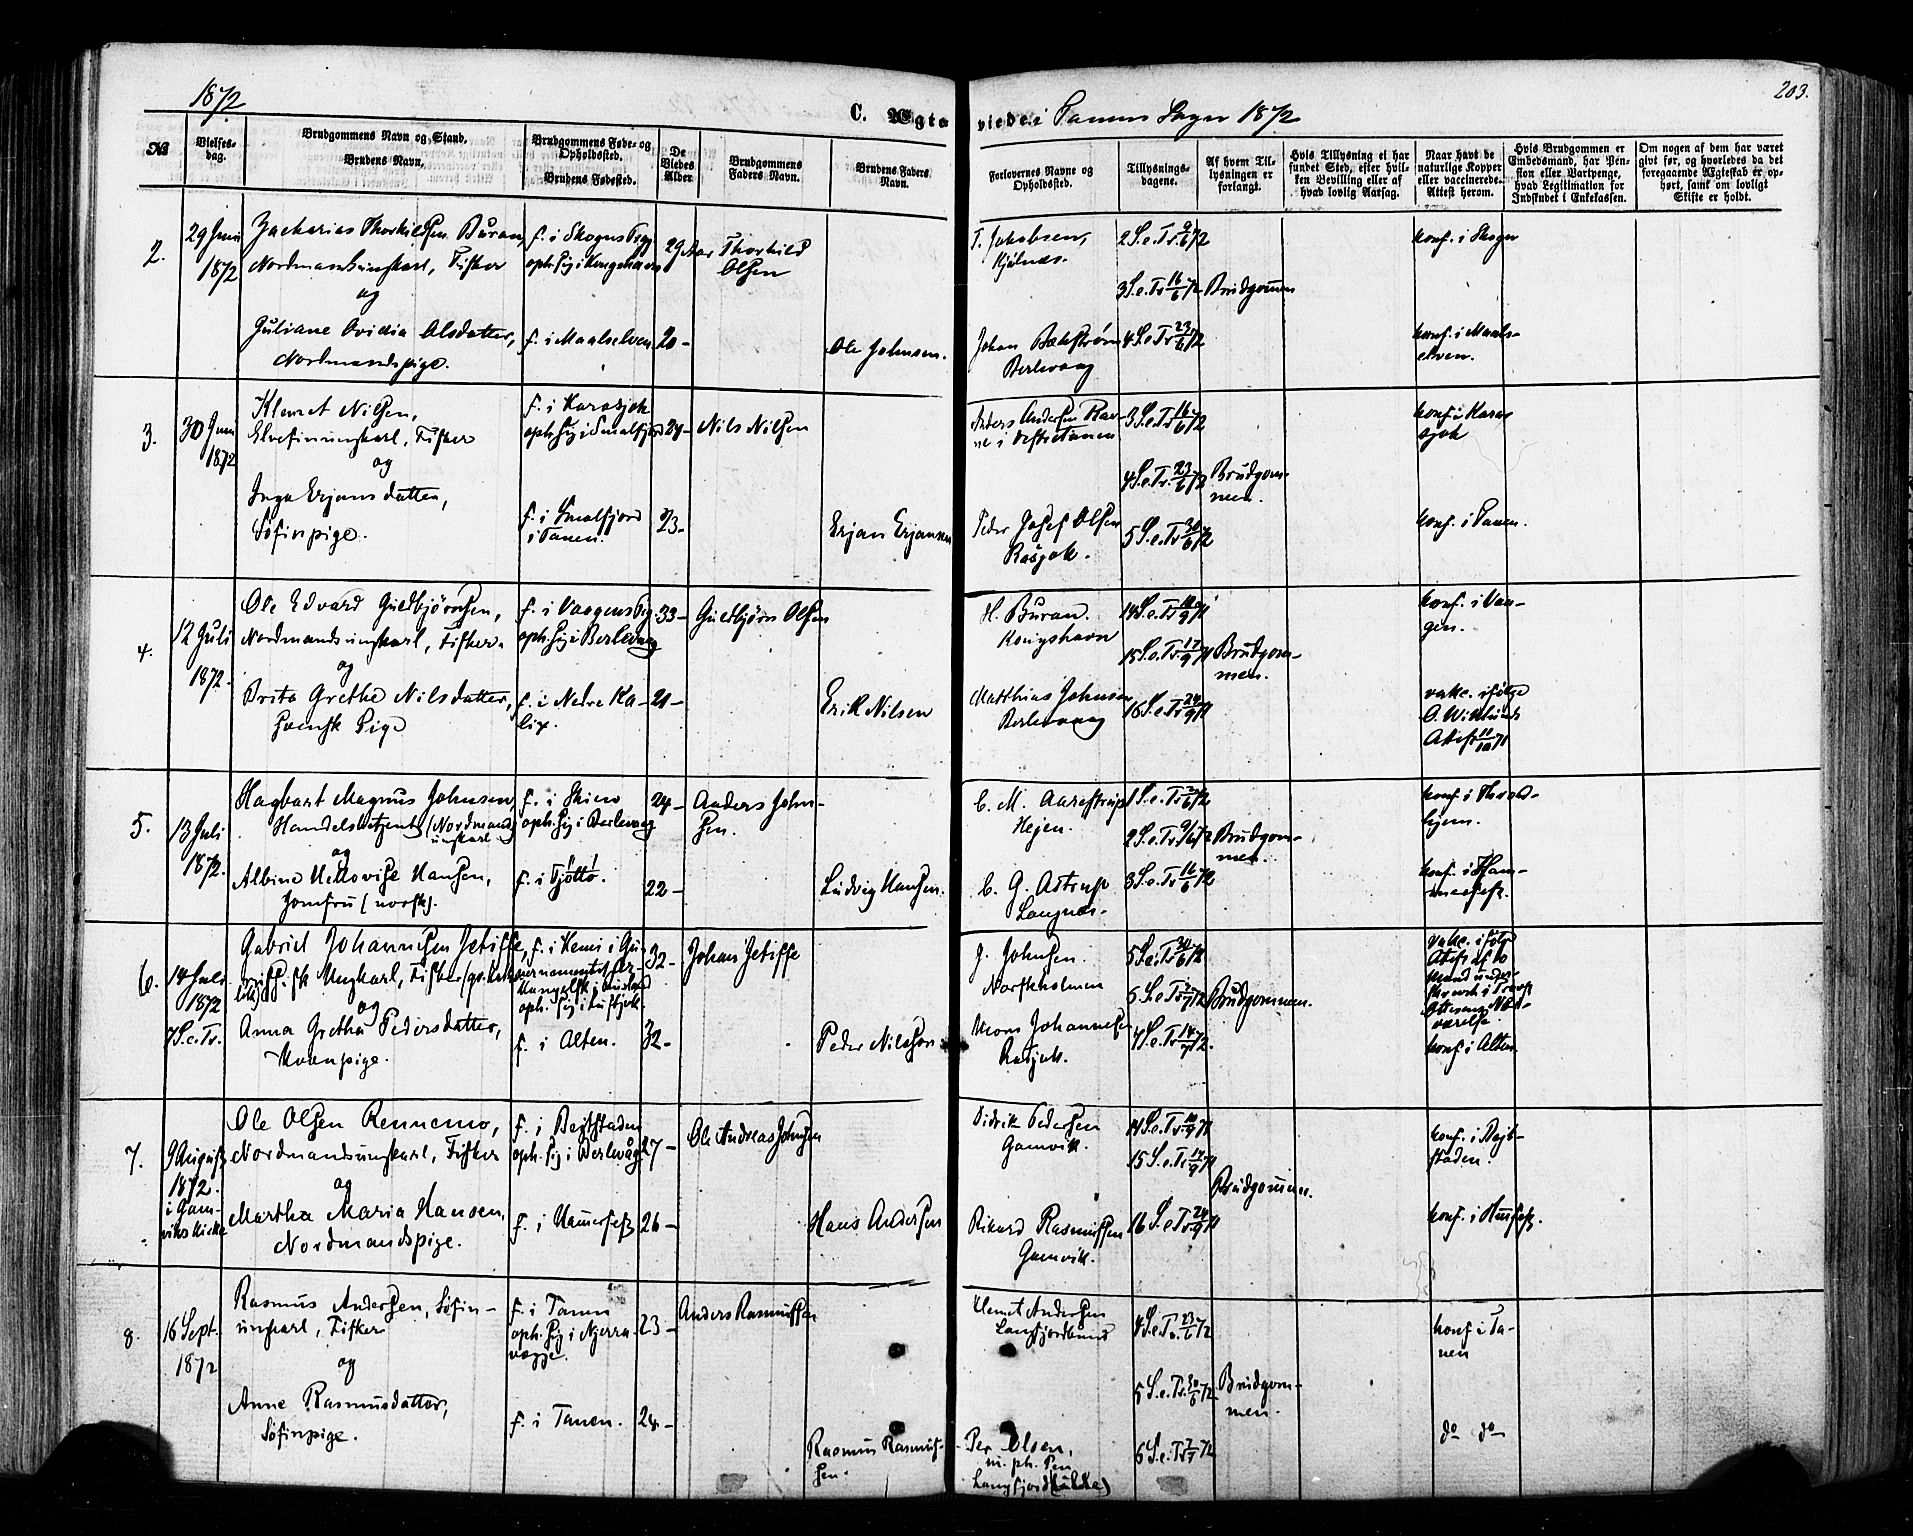 1872
C. Ægteviede i Tanens Sogn 1872
203.
No
Vielsesdag.
Brudgommens Navn og Stand.
Brudens Navn.
Brudgommens Føde- og Opholdssted.
Brudens Fødested.
De Viedes Alder
Brudgommens Faders Navn.
Brudens Faders Navn.
Forlovernes Navne og Opholdssted.
Tillysningsdagene.
Af hvem Tillysningen er forlangt.
Hvis Tillysning ei har fundet Sted, efter hvilken Bevilling eller af hvad lovlig Aarsag.
Naar havt de naturlige Kopper eller vaccinerede. Attest herom.
Hvis Brudgommen er Embedsmand, har Pension eller Vartpenge, hvad Legitimation for Indskudet i Enkekassen.
Om nogen af dem har været givt før, og hvorledes da det foregaaende Ægteskab er ophørt, samt om lovligt Skifte er holdt.
2.
29 Juni
1872
Zacharias Thorkildsen Buran
Nordmandsungkarl, Fisker
og
Juliane Ovidia Olsdatter,
Nordmandspige.
f. i Skogns Pgj
oph. sig i Kongshavn
f. i Maalselven
29 Aar
20 -
Thorkild
Olsen
Ole Johnsen.
T. Jakobsen,
Kjølnæs.
Johan Bækstrøm
Berlevaag
2 S. e. Tr. 9/6 72
3 S. e. Tr 16/6 72
4 S. e. Tr 23/6 72
Brudgommen
konf. i Skogn
konf. i Maals-
elven.
3.
30 Juni
1872
Klemet Nilsen,
Elvefinungkarl, Fisker
og
Inga Erjansdatter,
Søfinpige.
f. i Karasjok
oph. sig i Smalfjord
f. i Smalfjord
i Tanen.
24 -
23 -
Nils Nilsen
Erjan Erjansen
Anders Andersen Rav-
ne i Vestretanen
Peder Josef Olsen
Rasjok.
3 S. e. Tr 16/6 72
4 S. e. Tr. 23/6 72
5 S. e. Tr 30/6 72
Brudgom-
men.
konf. i Karas
sjok
konf. i Tanen.
4.
12 Juli
1872.
Ole Edvard Guldbjørnsen,
Nordmandsungkarl, Fisker.
og
Brita Grethe Nilsdatter,
Svensk Pige
f. i Vaagens Pgj
oph. sig i Berlevaag
f. i Nedre Ka-
lix.
33 -
21 -
Guldbjørn Olsen
Erik Nilsen
H. Buran.
Kongshavn
Matthias Johnsen
Berlevaag
14 S. e. Tr 10/9 71
15 S. e. Tr. 17/9 71
16 S. e. Tr 24/9 71
Brudgom-
men.
konf. i Vaa-
gen.
vakc. ifølge
O. Wiklunds
Attest 11/10 71
5.
13 Juli
1872.
Hagbart Magnus Johnsen
Handelsbetjent (Nordmands
ungkarl)
og
Albine Hedovise Hansen,
Jomfru (norsk).
f. i Skien
oph. sig i Berlevaag
f. i Tjøttø.
24 -
22 -
Anders John-
sen.
Ludvig Hansen.
C. M. Aarestrup
Hejen.
C. G. Astrup
Langnæs.
1 S. e. Tr 2/6 72
2 S. e. Tr 9/6 72
3 S. e. Tr 16/6 72
Brudgom-
men.
konf. i Thrond-
hjem.
konf. i Ham-
merfest.
6.
14 Juli
1872
7 S. e. Tr.
Gabriel Johannesen Jetisse,
Ungkarl, Fisker
og
Anna Gretha Pedersdatter,
Kvænpige.
f. i Kemi i Gu-
vernementet
oph. sig i
f. i Alten.
32 -
32 -
Johan Jetisse
Peder Nilsson
J. Johnsen.
Norskholmen
Mons Johannesen
Rasjok.
5 S. e. Tr 30/6 72
6 S. e. Tr 7/7 72
7 S. e. Tr 14/7 72.
Brudgommen.
vakc. ifølge
Attest af to
Mænd under-
skrevet i Provst
Ottesens Nær-
værelse.
konf. i Alten
7.
9 August
1872.
i Gam-
viks Kirke
Ole Olsen Rennemo,
Nordmandsungkarl, Fisker
og
Martha Maria Hansen,
Nordmandspige.
f. i Bejtstaden
oph. sig i Berlevåg
f. i Hammerfest
27 -
26 -
Ole Andreas Johnsen
Hans Andersen
Didrik Pedersen
Gamvik.
Rikard Rasmussen
Gamvik.
14 S. e. Tr 10/9 71
15 S. e. Tr 17/9 71
16 S. e. Tr 24/9 71
Brudgommen.
konf. i Bejt-
staden.
konf. i Hmfest.
8.
16 Sept.
1872
Rasmus Andersen, Søfin-
ungkarl, Fisker
og
Anne Rasmusdatter,
Søfinpige.
f. i Tanen
oph. sig i Njerra-
vægge.
f. i Tanen.
23 -
24 -
Anders Rasmussen
Rasmus Rasmus-
sen.
Klemet Andersen
Langfjordbund
Per Olsen,
Langfjord
4 S. e. Tr. 23/6 72
5 S. e. Tr. 30/6 72
6 S. e. Tr 7/7 72
Brudgom-
men.
konf. i Ta-
nen
do do